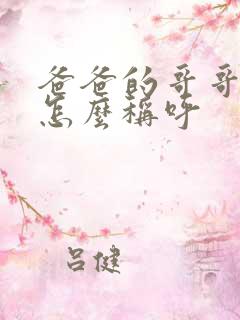 爸爸的哥哥
怎麼稱呼
呂健